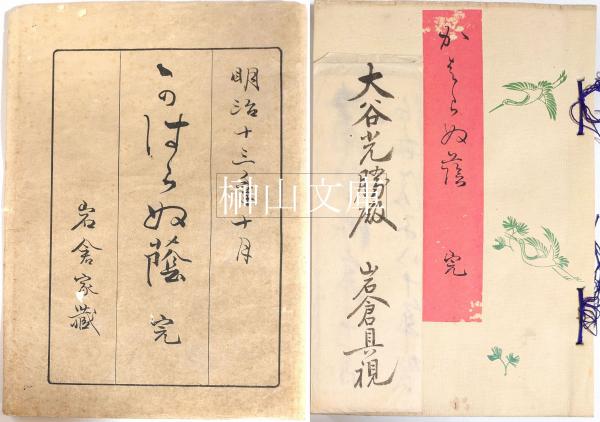 明治十三年十月
かはらぬ蔭 完
岩倉家蔵
かはらぬ蔭 完
大谷光勝殿
岩倉具視
榊山文庫